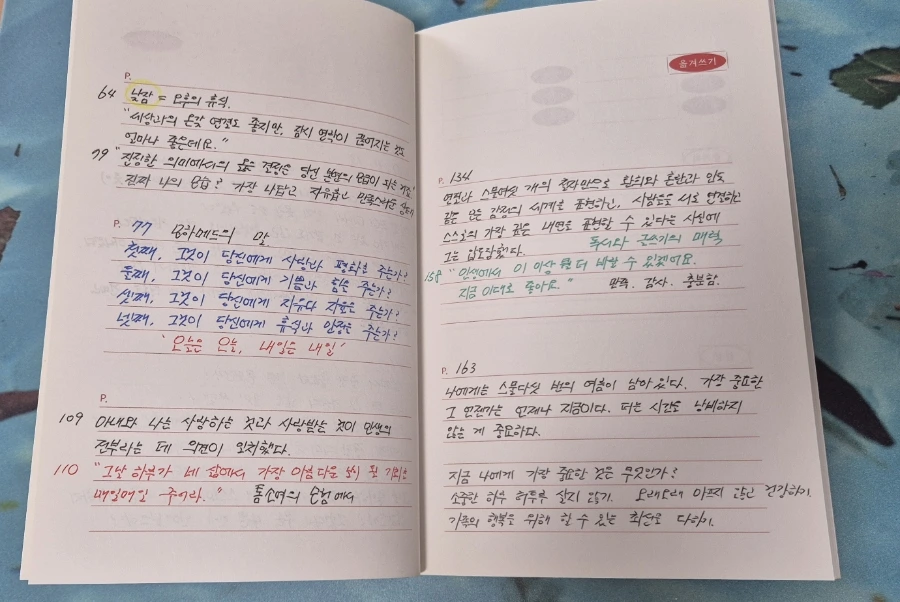 P.
64 낮잠 = 오후의 휴식.
"세상과의 온갖 연결도 좋지만, 잠시 연락이 끊어지는 것도
얼마나 좋은데요."
79 "진정한 의미에서의 옳은 결정은 당신 본연의 모습이 되는 것."
진짜 나의 모습? 가장 나답고 자유롭고 만족스러운
P. 77 모하메드의 말
첫째, 그것이 당신에게 사랑과 평화를 주는가?
둘째, 그것이 당신에게 기쁨과 힘을 주는가?
셋째, 그것이 당신에게 자유와 치유를 주는가?
넷째, 그것이 당신에게 휴식과 안정을 주는가?
'오늘은 오늘, 내일은 내일'
P.
109 아내와 나는 사랑하는 것과 사랑받는 것이 인생의
전부라는 데 의견이 일치했다.
110 "그날 하루가 네 삶에서 가장 아름다운 날이 될 기회를
매일매일 주어라." 톰소여의 모험에서
옮겨쓰기
P. 134
연필과 스물여섯 개의 글자만으로 환희와 혼란과 의도
같은 모든 감정의 세계를 표현하고, 사람들을 서로 연결하고
스스로의 가장 깊은 내면을 표현할 수 있다는 사실에
그는 압도당했다. 독서와 글쓰기의 매력
158 "인생에서 이 이상 뭘 더 바랄 수 있겠어요.
지금 이대로 좋아요." 만족. 감사. 충분함.
P. 163
나에게는 스물다섯 번의 여름이 남아 있다. 가장 중요한
그 언젠가는 언제나 지금이다. 더는 시간을 낭비하지
않는 게 중요하다.
지금 나에게 가장 중요한 것은 무엇인가?
소중한 하루 허투루 살지 않기. 오래오래 아프지 않고 건강하기.
가족의 행복을 위해 할 수 있는 최선을 다하기.